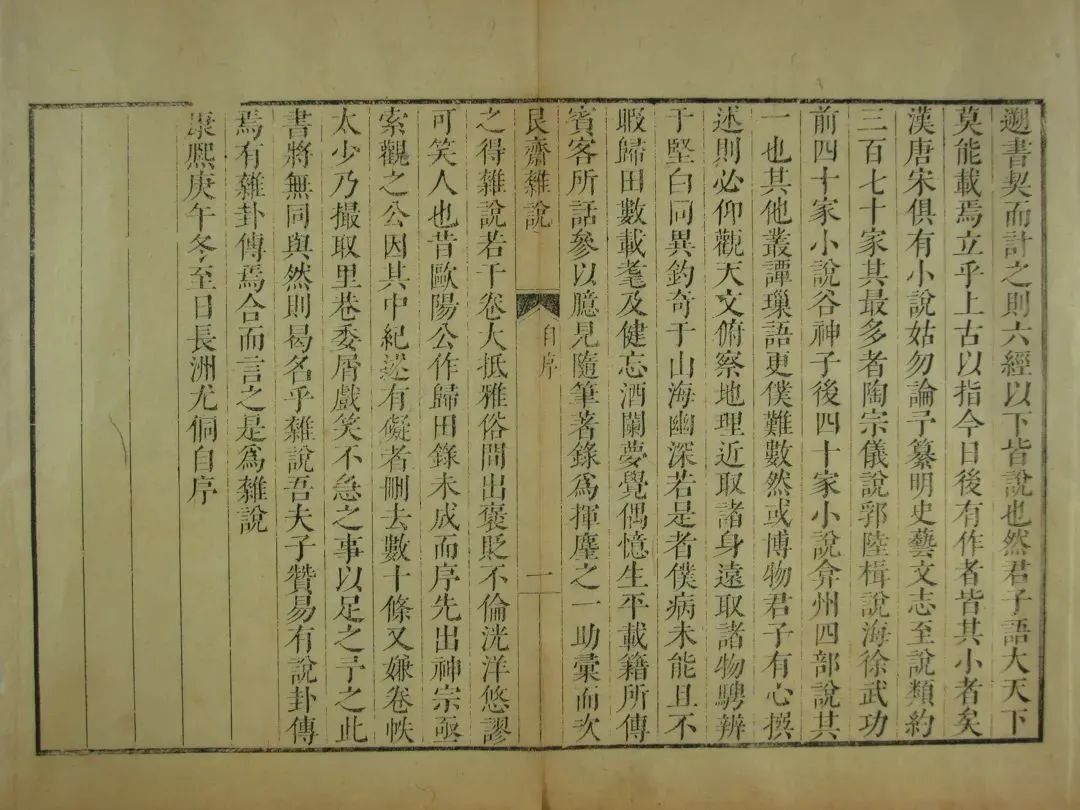 遡書契而計之則六經以下皆說也然君子語大天下
莫能載焉立乎上古以指今日後有作者皆其小者矣
漢唐宋俱有小說姑勿論予纂明史藝文志至說類約
三百七十家其最多者陶宗儀說郛陸楫說海徐武功
前四十家小說谷神子後四十家小說弇州四部說其
一也其他叢譚璅語更僕難數然或博物君子有心撰
述則必仰觀天文俯察地理近取諸身遠取諸物騁辨
于堅白同異釣奇于山海幽深若是者僕病未能且不
暇歸田數載耄及健忘酒闌夢覺偶憶生平載籍所傳
賓客所話參以臆見隨筆著錄爲揮麈之一助彙而次
艮齋雜說
自序
一
之得雜說若干卷大抵雅俗間出褒貶不倫洸洋悠謬
可笑人也昔歐陽公作歸田錄未成而序先出神宗亟
索觀之公因其中紀述有礙者刪去數十條又嫌卷帙
太少乃撮取里巷委屑戲笑不急之事以足之予之此
書將無同與然則曷名乎雜說吾夫子贊易有說卦傳
焉有雜卦傳焉合而言之是爲雜說
康熙庚午冬至日長洲尤侗自序